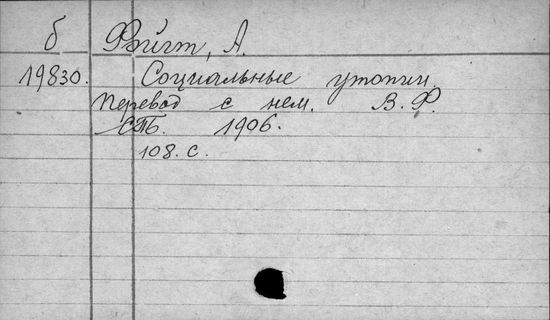 б Фойгт, А.
19830. Социальные утопии.
Перевод с нем. В. Ф.
СПБ. 1906.
108. с.